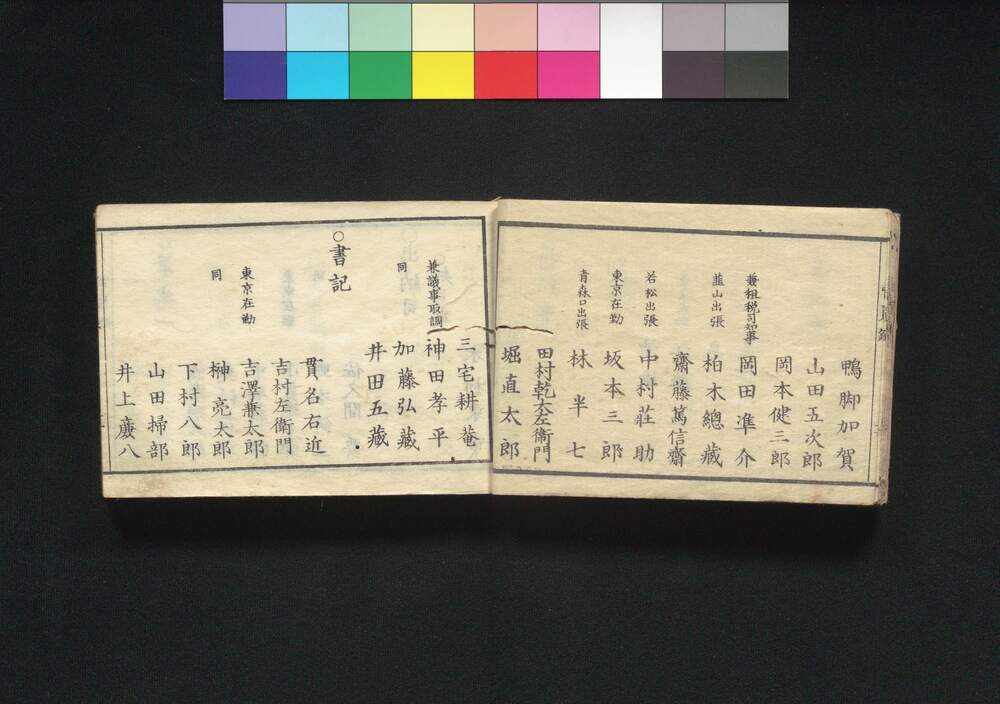 鴨脚加賀
山田五次郎
岡本健三郎
兼租税司知事 岡田準介
韮山出張 柏木總蔵
齋藤篤信齋
若松出張 中村莊助
東京在勤 坂本三郎
青森口出張 林半七
田村乾太左衛門
堀直太郎
三宅耕菴
兼議事取調 神田孝平
同 加藤弘蔵
井田五蔵
○書記
貫名右近
吉村左衛門
東京在勤 吉澤兼太郎
同 榊亮太郎
下村八郎
山田掃部
井上慶八